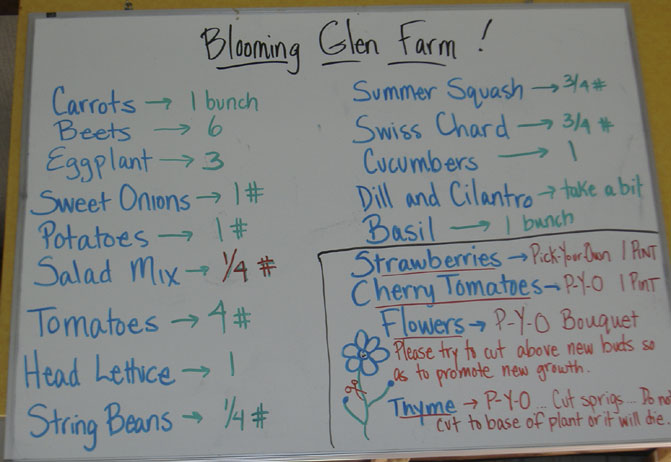 Blooming Glen Farm!
Carrots → 1 bunch
Beets → 6
Eggplant → 3
Sweet Onions → 1#
Potatoes → 1#
Salad Mix → 1/4 #
Tomatoes → 4#
Head Lettuce → 1
String Beans → 1/4 #
Summer Squash → 3/4 #
Swiss Chard → 3/4 #
Cucumbers → 1
Dill and Cilantro → take a bit
Basil → 1 bunch
Strawberries → Pick-Your-Own 1 Pint
Cherry Tomatoes → P-Y-O 1 Pint
Flowers → P-Y-O Bouquet
Please try to cut above new buds so
as to promote new growth.
Thyme → P-Y-O ... Cut sprigs ... Do not
cut to base of plant or it will die.